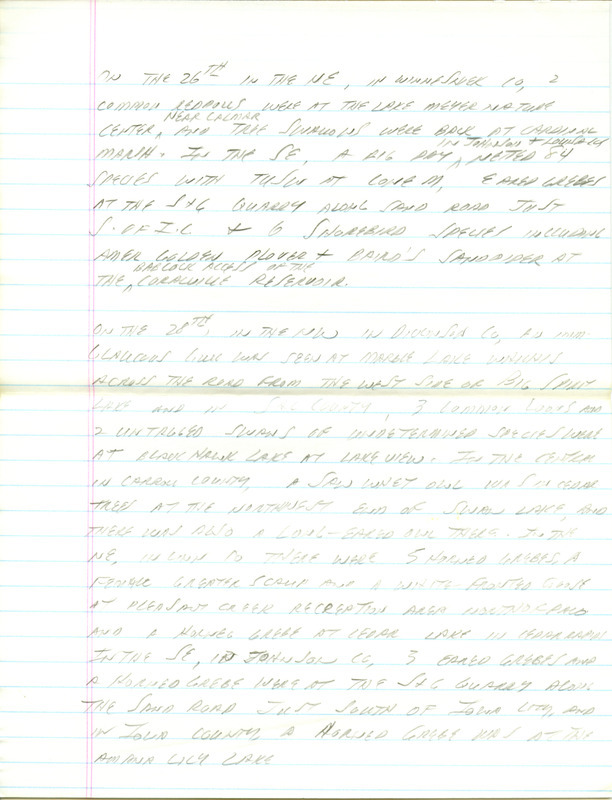 ON THE 26TH IN THE NE, IN WINNESHIEK CO, 2
COMMON REDPOLLS WERE AT THE LAKE MEYER NATURE
CENTER, NEAR CALMAR AND TREE SWALLOWS WERE BACK AT CARDINAL
MARSH. IN THE SE, A BIG DAY IN JOHNSON + LOUISA CO NETTED 84
SPECIES WITH AT CONE M, EARED GREBES
AT THE S+G QUARRY ALONG SAND ROAD JUST
S. OF I.C. + 6 SHOREBIRD SPECIES INCLUDING
AMER GOLDEN PLOVER + BAIRD'S SANDPIPER AT
THE BABCOCK ACCESS OF THE CORALVILLE RESERVOIR.
ON THE 28TH, IN THE NW IN DICKINSON CO, AN IMM.
GLAUCOUS GULL WAS SEEN AT MARBLE LAKE WHICH IS
ACROSS THE ROAD FROM THE WEST SIDE OF BIG SPIRIT
LAKE AND IN SAC COUNTY, 3 COMMON LOONS AND
2 UNTAGGED SWANS OF UNDETERMINED SPECIES WERE
AT BLACK HAWK LAKE AT LAKE VIEW. IN THE CENTER
IN CARROLL COUNTY, A SAW WHET OWL WAS IN CEDAR
TREES AT THE NORTHWEST END OF SWAN LAKE, AND
THERE WAS ALSO A LONG-EARED OWL THERE. IN THE
NE, IN LINN CO THERE WERE 5 HORNED GREBES, A
FEMALE GREATER SCAUP AND A WHITE-FRONTED GOOSE
AT PLEASANT CREEK RECREATION AREA NORTH OF PALO
AND A HORNED GREBE AT CEDAR LAKE IN CEDAR RAPIDS
IN THE SE, IN JOHNSON CO, 3 EARED GREBES AND
A HORNED GREBE WERE AT THE S+G QUARRY ALONG
THE SAND ROAD JUST SOUTH OF IOWA CITY, AND
IN IOWA COUNTY, A HORNED GREBE WAS AT THE
AMANA LILY LAKE